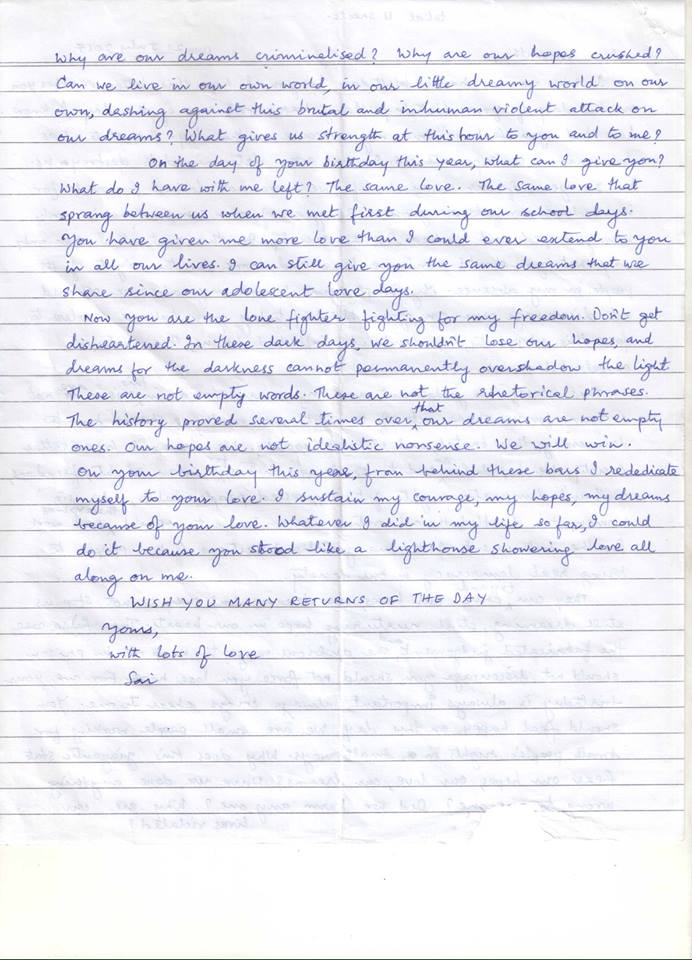 Why are our dreams criminalised? Why are our hopes crushed?
Can we live in our own world, in our little dreamy world on our
own, dashing against this brutal and inhuman violent attack on
our dreams? What gives us strength at this hour to you and to me?
On the day of your birthday this year, what can I give you?
What do I have with me left? The same love. The same love that
sprang between us when we met first during our school days.
You have given me more love than I could ever extend to you
in all our lives. I can still give you the same dreams that we
share since our adolescent love days.
Now you are the lone fighter fighting for my freedom. Don't get
disheartened. In these dark days, we shouldn't lose our hopes, and
dreams for the darkness cannot permanently overshadow the light
These are not empty words. These are not the rhetorical phrases.
The history proved several times over that our dreams are not empty
ones. Our hopes are not idealistic nonsense. We will win.
On your birthday this year, from behind these bars I rededicate
myself to your love. I sustain my courage, my hopes, my dreams
because of your love. Whatever I did in my life so far, I could
do it because you stood like a lighthouse showering love all
along on me.
WISH YOU MANY RETURNS OF THE DAY
Yours,
with lots of love
Sai